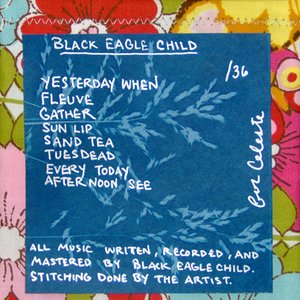 BLACK EAGLE CHILD
/36
YESTERDAY WHEN
FLEUVE
GATHER
SUN LIP
SAND TEA
TUESDEAD
EVERY TODAY
AFTERNOON SEE
Celeste
ALL MUSIC WRITEN, RECORDED, AND
MASTERED BY BLACK EAGLE CHILD.
STITCHING DONE BY THE ARTIST.